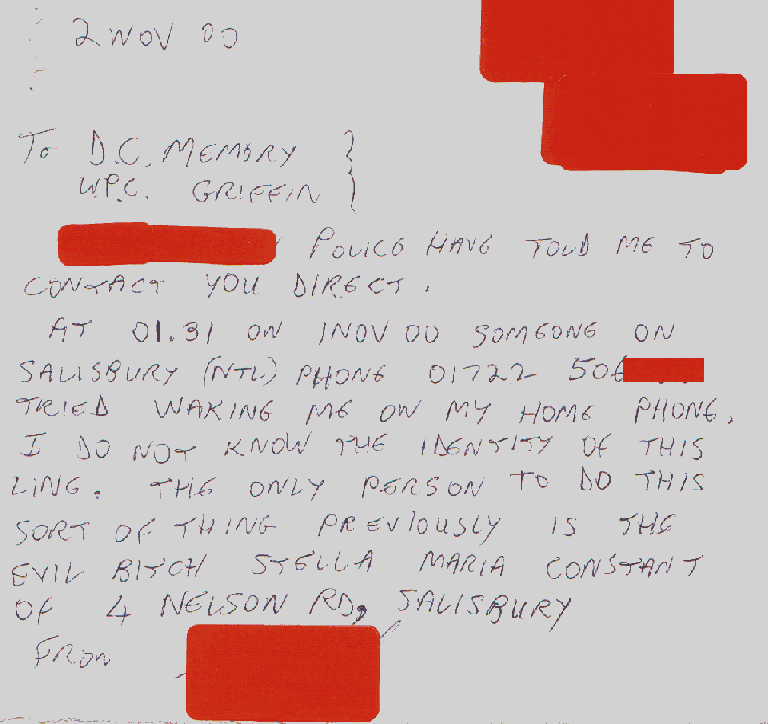 2 NOV 00
To D.C. MEMORY }
W.P.C. GRIFFIN }
POLICE HAVE TOLD ME TO
CONTACT YOU DIRECT.
AT 01.31 ON 1NOV 00 SOMEONE ON
SALISBURY (NTL) PHONE 01722 506
TRIED WAKING ME ON MY HOME PHONE.
I DO NOT KNOW THE IDENTITY OF THIS
LINE. THE ONLY PERSON TO DO THIS
SORT OF THING PREVIOUSLY IS THE
EVIL BITCH STELLA MARIA CONSTANT
OF 4 NELSON RD, SALISBURY
FROM